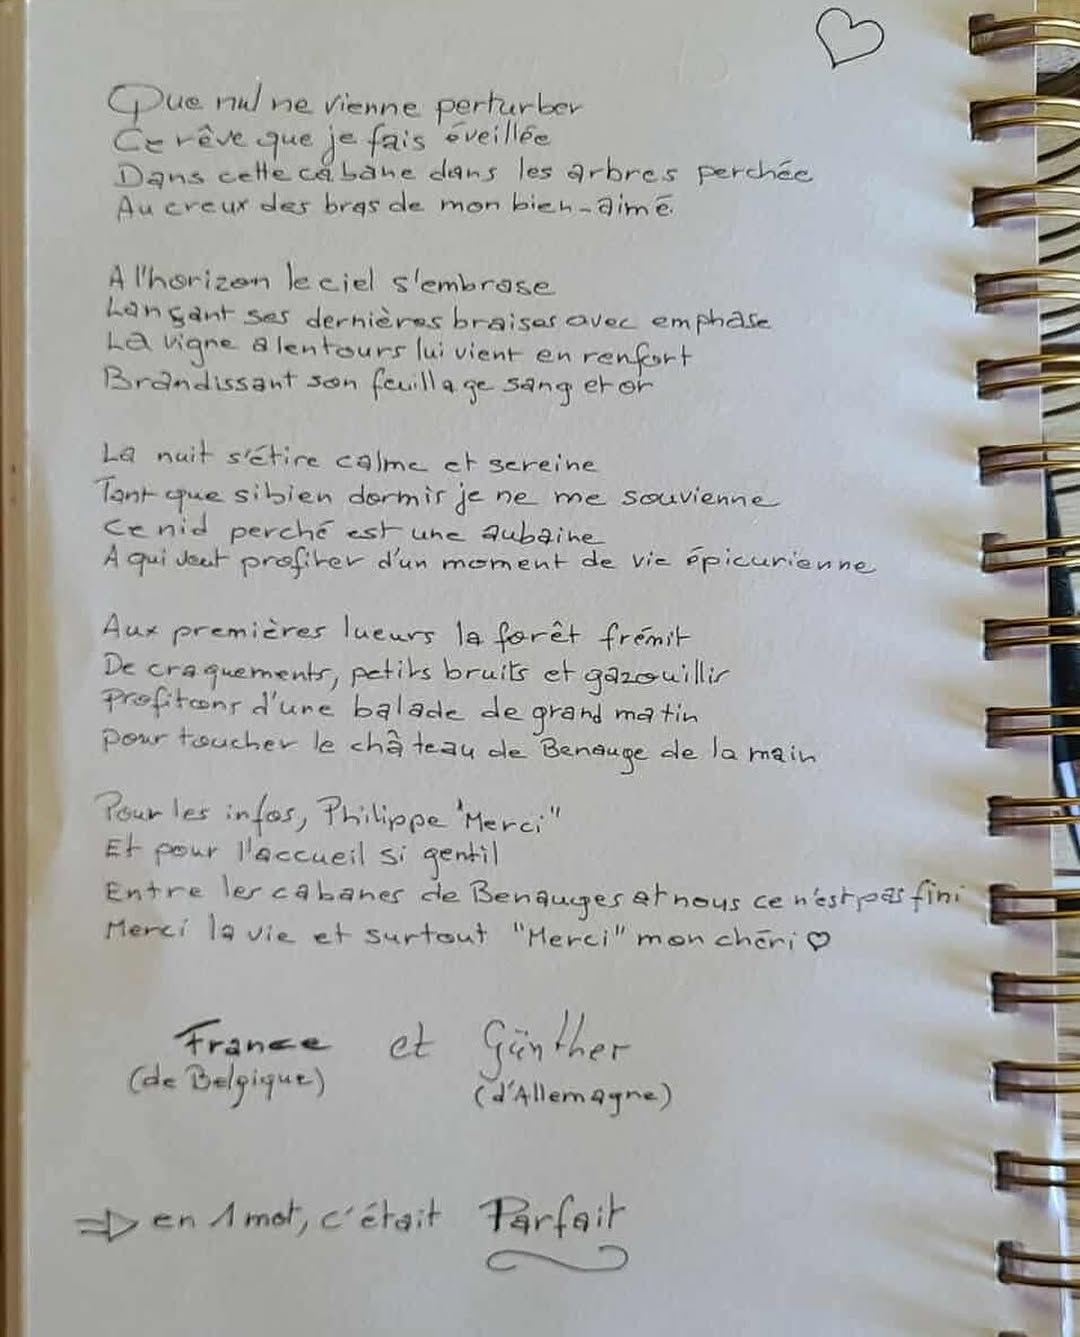 Que nul ne vienne perturber
Ce rêve que je fais éveillée
Dans cette cabane dans les arbres perchée
Au creux des bras de mon bien-aimé.
A l'horizon le ciel s'embrase
Lançant ses dernières braises avec emphase
La vigne alentours lui vient en renfort
Brandissant son feuillage sang et or
La nuit s'étire calme et sereine
Tant que si bien dormir je ne me souvienne
Ce nid perché est une aubaine
A qui veut profiter d'un moment de vie épicurienne
Aux premières lueurs la forêt frémit
De craquements, petits bruits et gazouillir
Profitons d'une balade de grand matin
pour toucher le château de Benauge de la main
Pour les infos, Philippe "Merci"
Et pour l'accueil si gentil
Entre les cabanes de Benauges et nous ce n'est pas fini
Merci la vie et surtout "Merci" mon chéri ♡
France et Günther
(de Belgique) (d'Allemagne)
⇒ en 1 mot, c'était Parfait